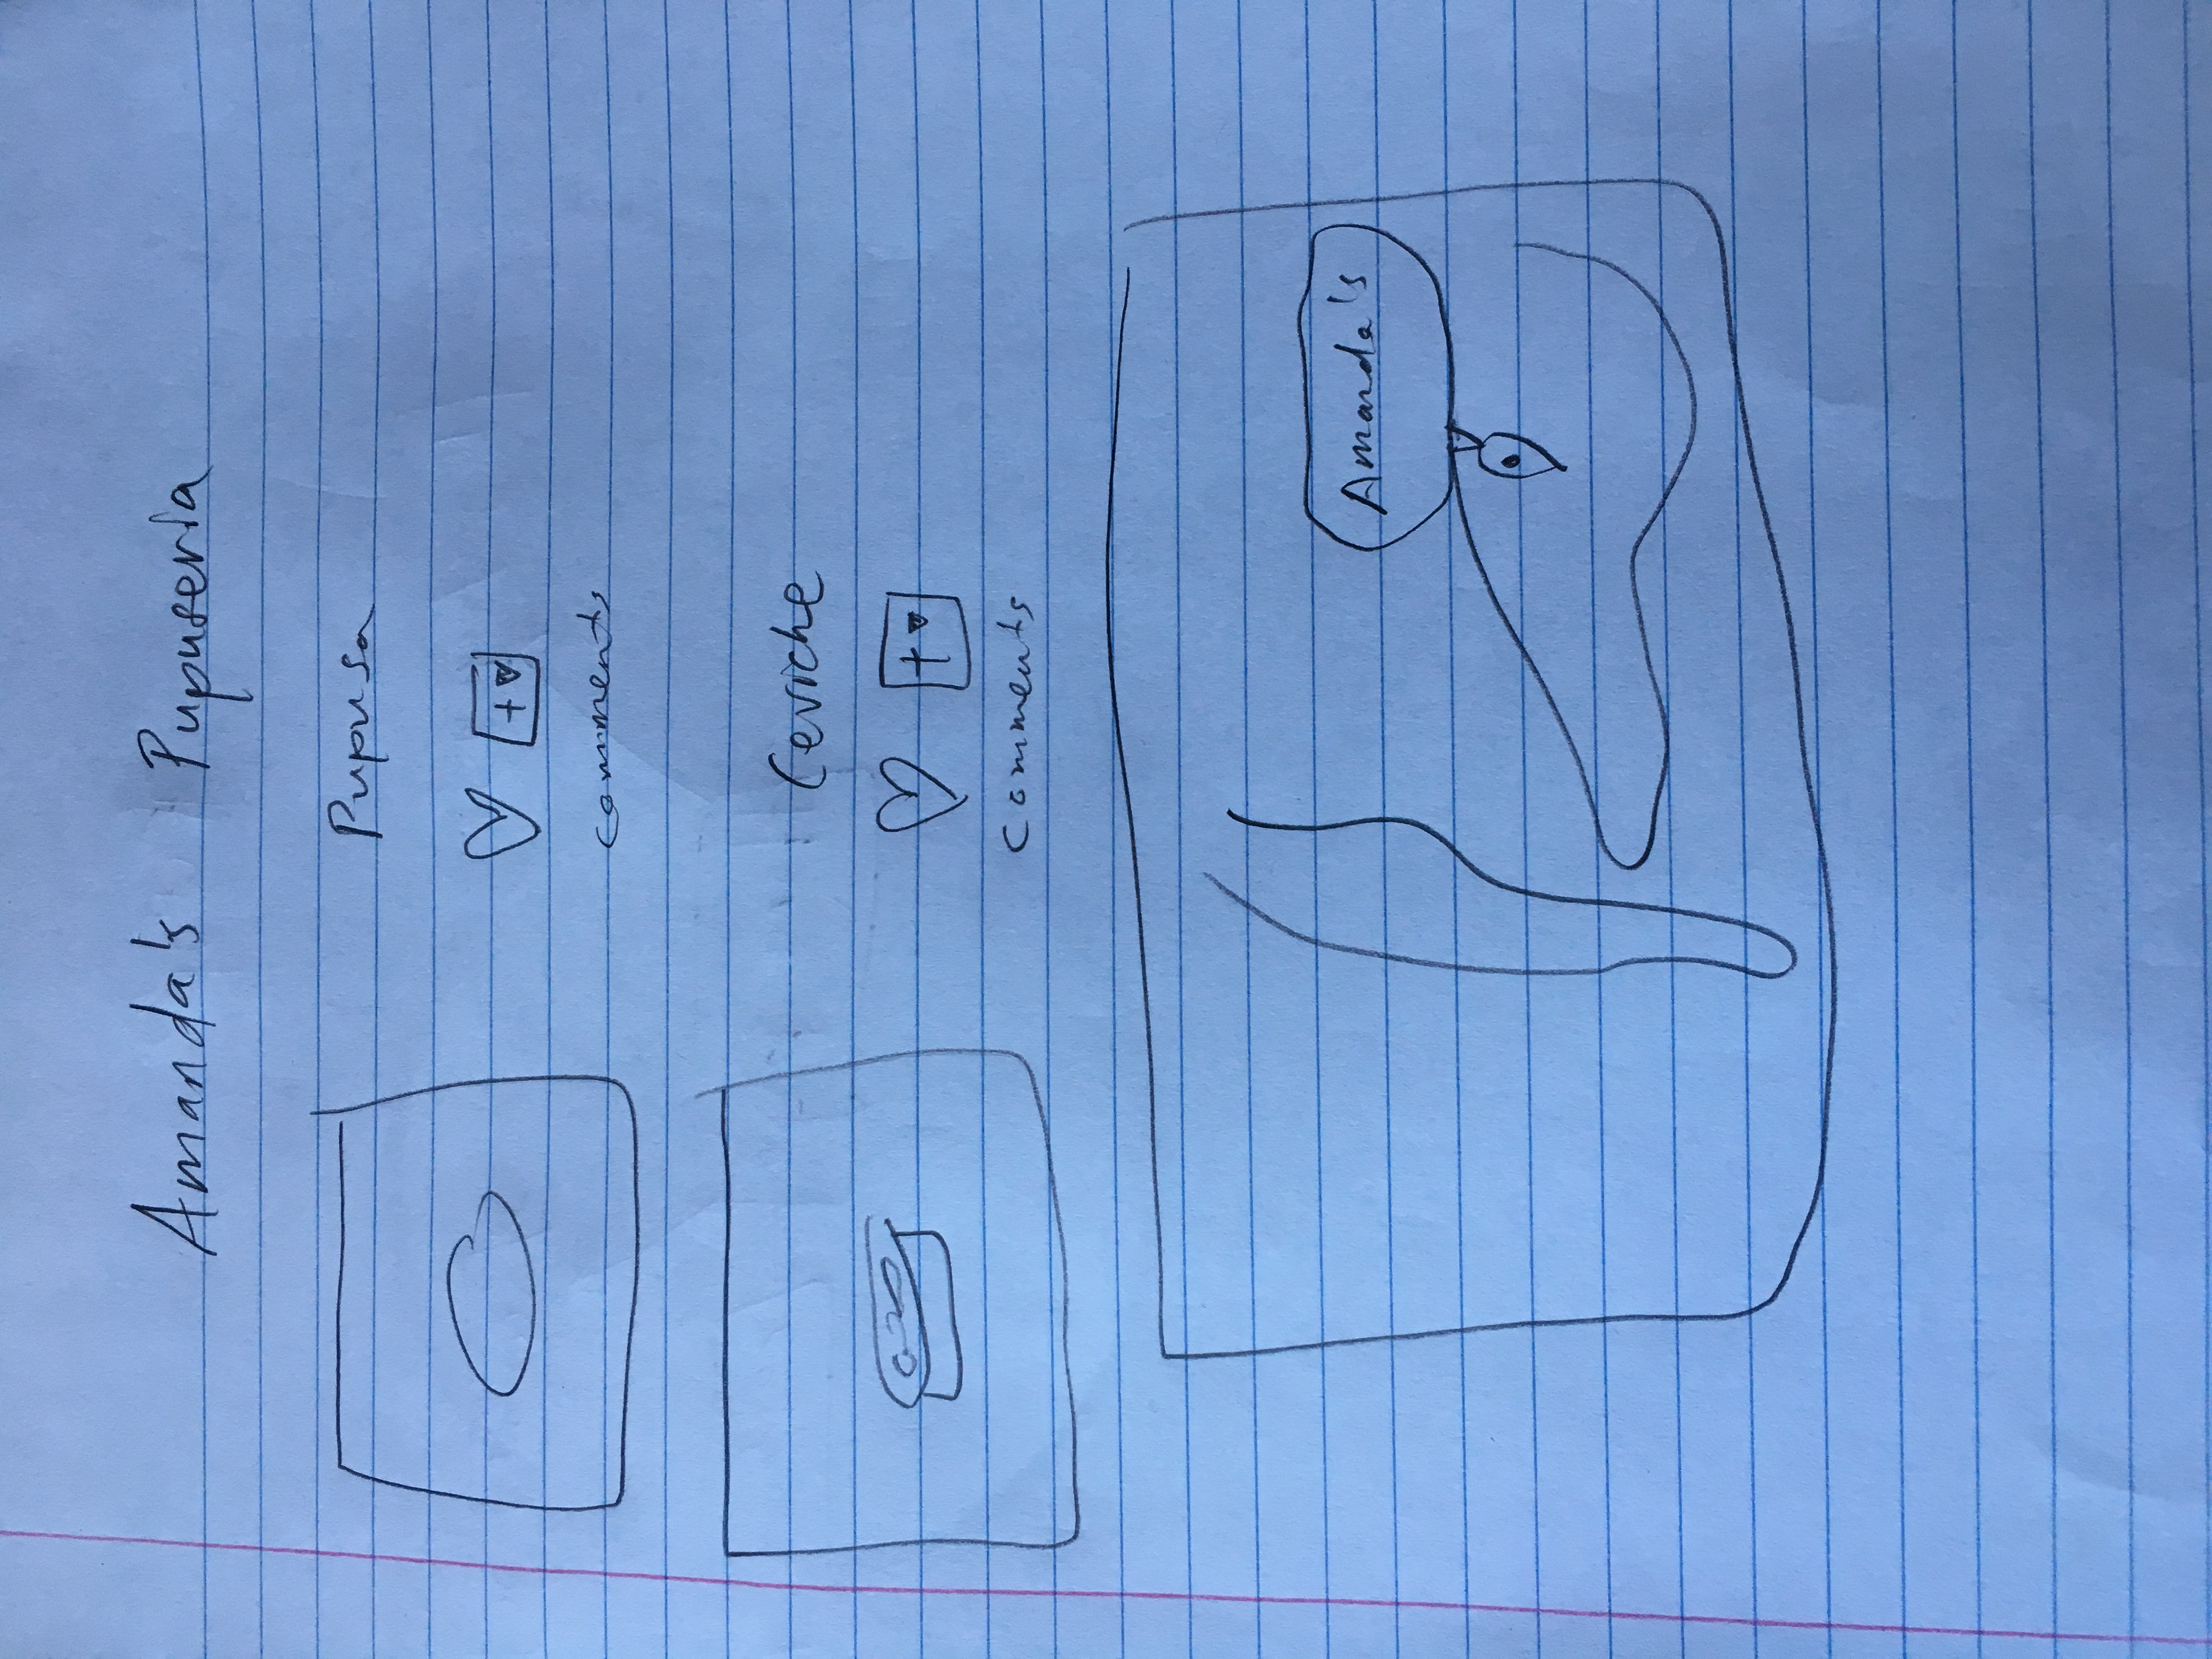 Amanda's Pupuseria
Pupusa
+
comments
Ceviche
+
Comments
Amanda's